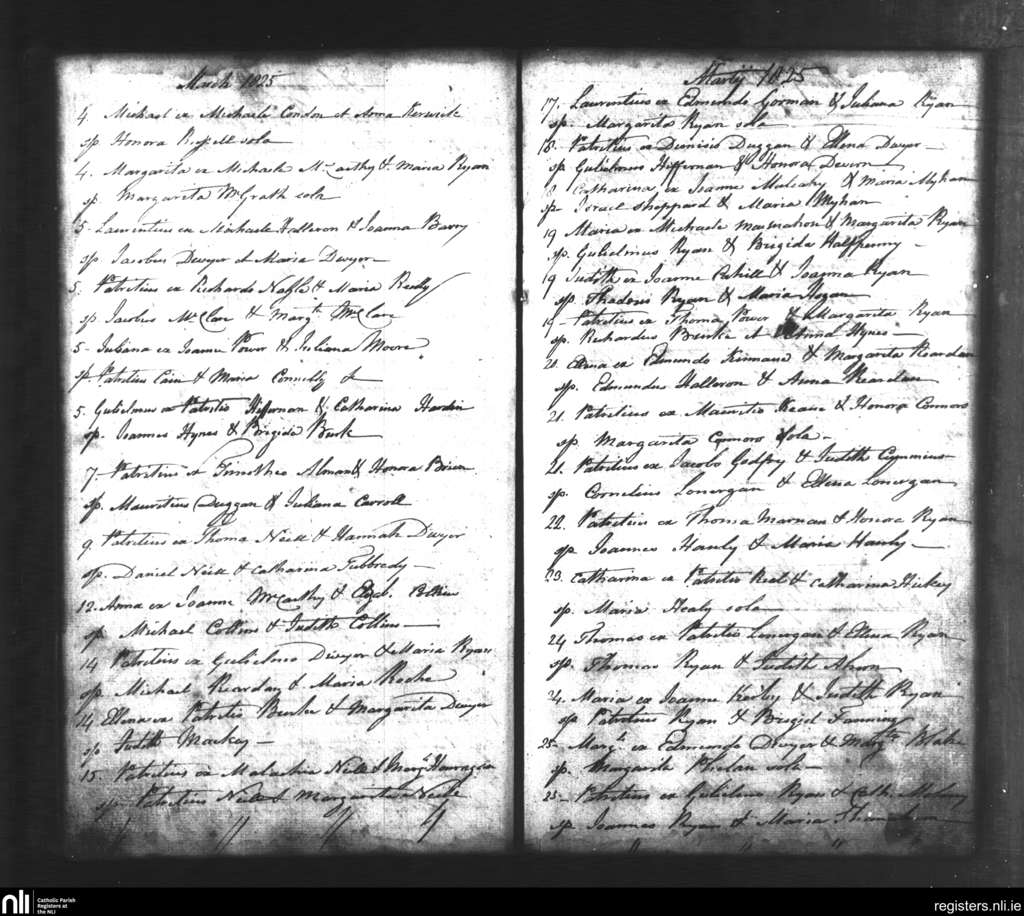 March 1825
4. Michael ex Michaele Condon et Anna Kerwick
sp Honora sola
4. Margarita ex Michaele McCarthy & Maria Ryan
sp Margarita McGrath sola
5. Laurentius ex Michaele Halloron & Joanna Barry
sp Jacobus Dwyer et Maria Dwyer
5. Patritius ex Richardo & Maria
sp Jacobus McClare & Margt. McClare
5. Juliana ex Joanne Power & Juliana Moore
sp Patritius Cain & Maria Connelly
5. Gulielmus ex Patritio Heffernan & Catharina
sp. Joannes Hynes & Brigida Burk
7. Patritius Timotheo & Honora Brien
sp. Mauritius Duggan & Juliana Carroll
9 Patritius ex Thoma Neill & Hannah Dwyer
sp. Daniel Neill & Catharina
12. Anna ex Joanne McCarthy &
sp Michael Collins & Judith Collins
14 Patritius ex Gulielmo Dwyer & Maria Ryan
sp Michael Reardan & Maria Roche
14 Ellena ex Patritio Burke & Margarita Dwyer
sp Judith Mackey
15. Patritius ex Malachia Neill & Margt.
sp Patritius Neill & Margarita Neill
Martij 1825
17. Laurentius ex Edmundo Gorman & Juliana Ryan
sp. Margarita Ryan sola
18. Patritius ex Dionisio Duggan & Ellena Dwyer
sp. Gulielmus Heffernan & Honora
8 Catharina ex Joanne Mulcahy & Maria Myhan
sp Israel Sheppard & Maria Myhan
19 Maria ex Michaele & Margarita Ryan
sp. Gulielmus Ryan & Brigida Halfpenny
19 Judith ex Joanne Cahill & Joanna Ryan
sp. Thadeus Ryan & Maria Hogan
19 Patritius ex Thoma Power & Margarita Ryan
sp. Richardus Burke et Anna Hynes
20. Ellena ex Edmundo & Margarita Reardan
sp. Edmundus Halloron & Anna Reardan
21. Patritius ex Mauritio Keane & Honora Connors
sp Margarita Connors sola
21. Patritius ex Jacobo Godfry & Judith Cummins
sp. Cornelius Lonergan & Ellena Lonergan
22. Patritius ex Thoma Marnan & Honora Ryan
sp Joannes Hanly & Maria Hanly
23. Catharina ex Patritio & Catharina Hickey
sp. Maria Healy sola
24 Thomas ex Patritio Lonergan & Ellena Ryan
sp. Thomas Ryan & Judith Ahern
24. Maria ex Joanne & Judith Ryan
sp Patritius Ryan & Brigid Fanning
25. Margt. ex Edmundo Dwyer & Margta Blake
sp. Margarita Phelan sola
25 Patritius ex Gulielmo Ryan & Cath.
sp. Joannes Ryan & Maria
nli
Catholic Parish
Registers at
the NLI
registers.nli.ie